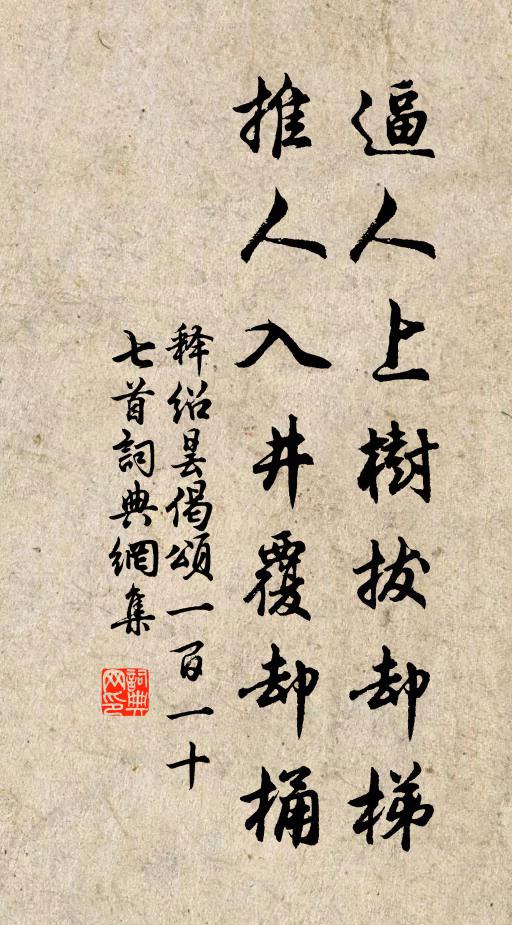 逼人上樹拔却梯
推人入井覆却桶
释绍昙偈頌一百一十
七首詞典網集
詞典网印